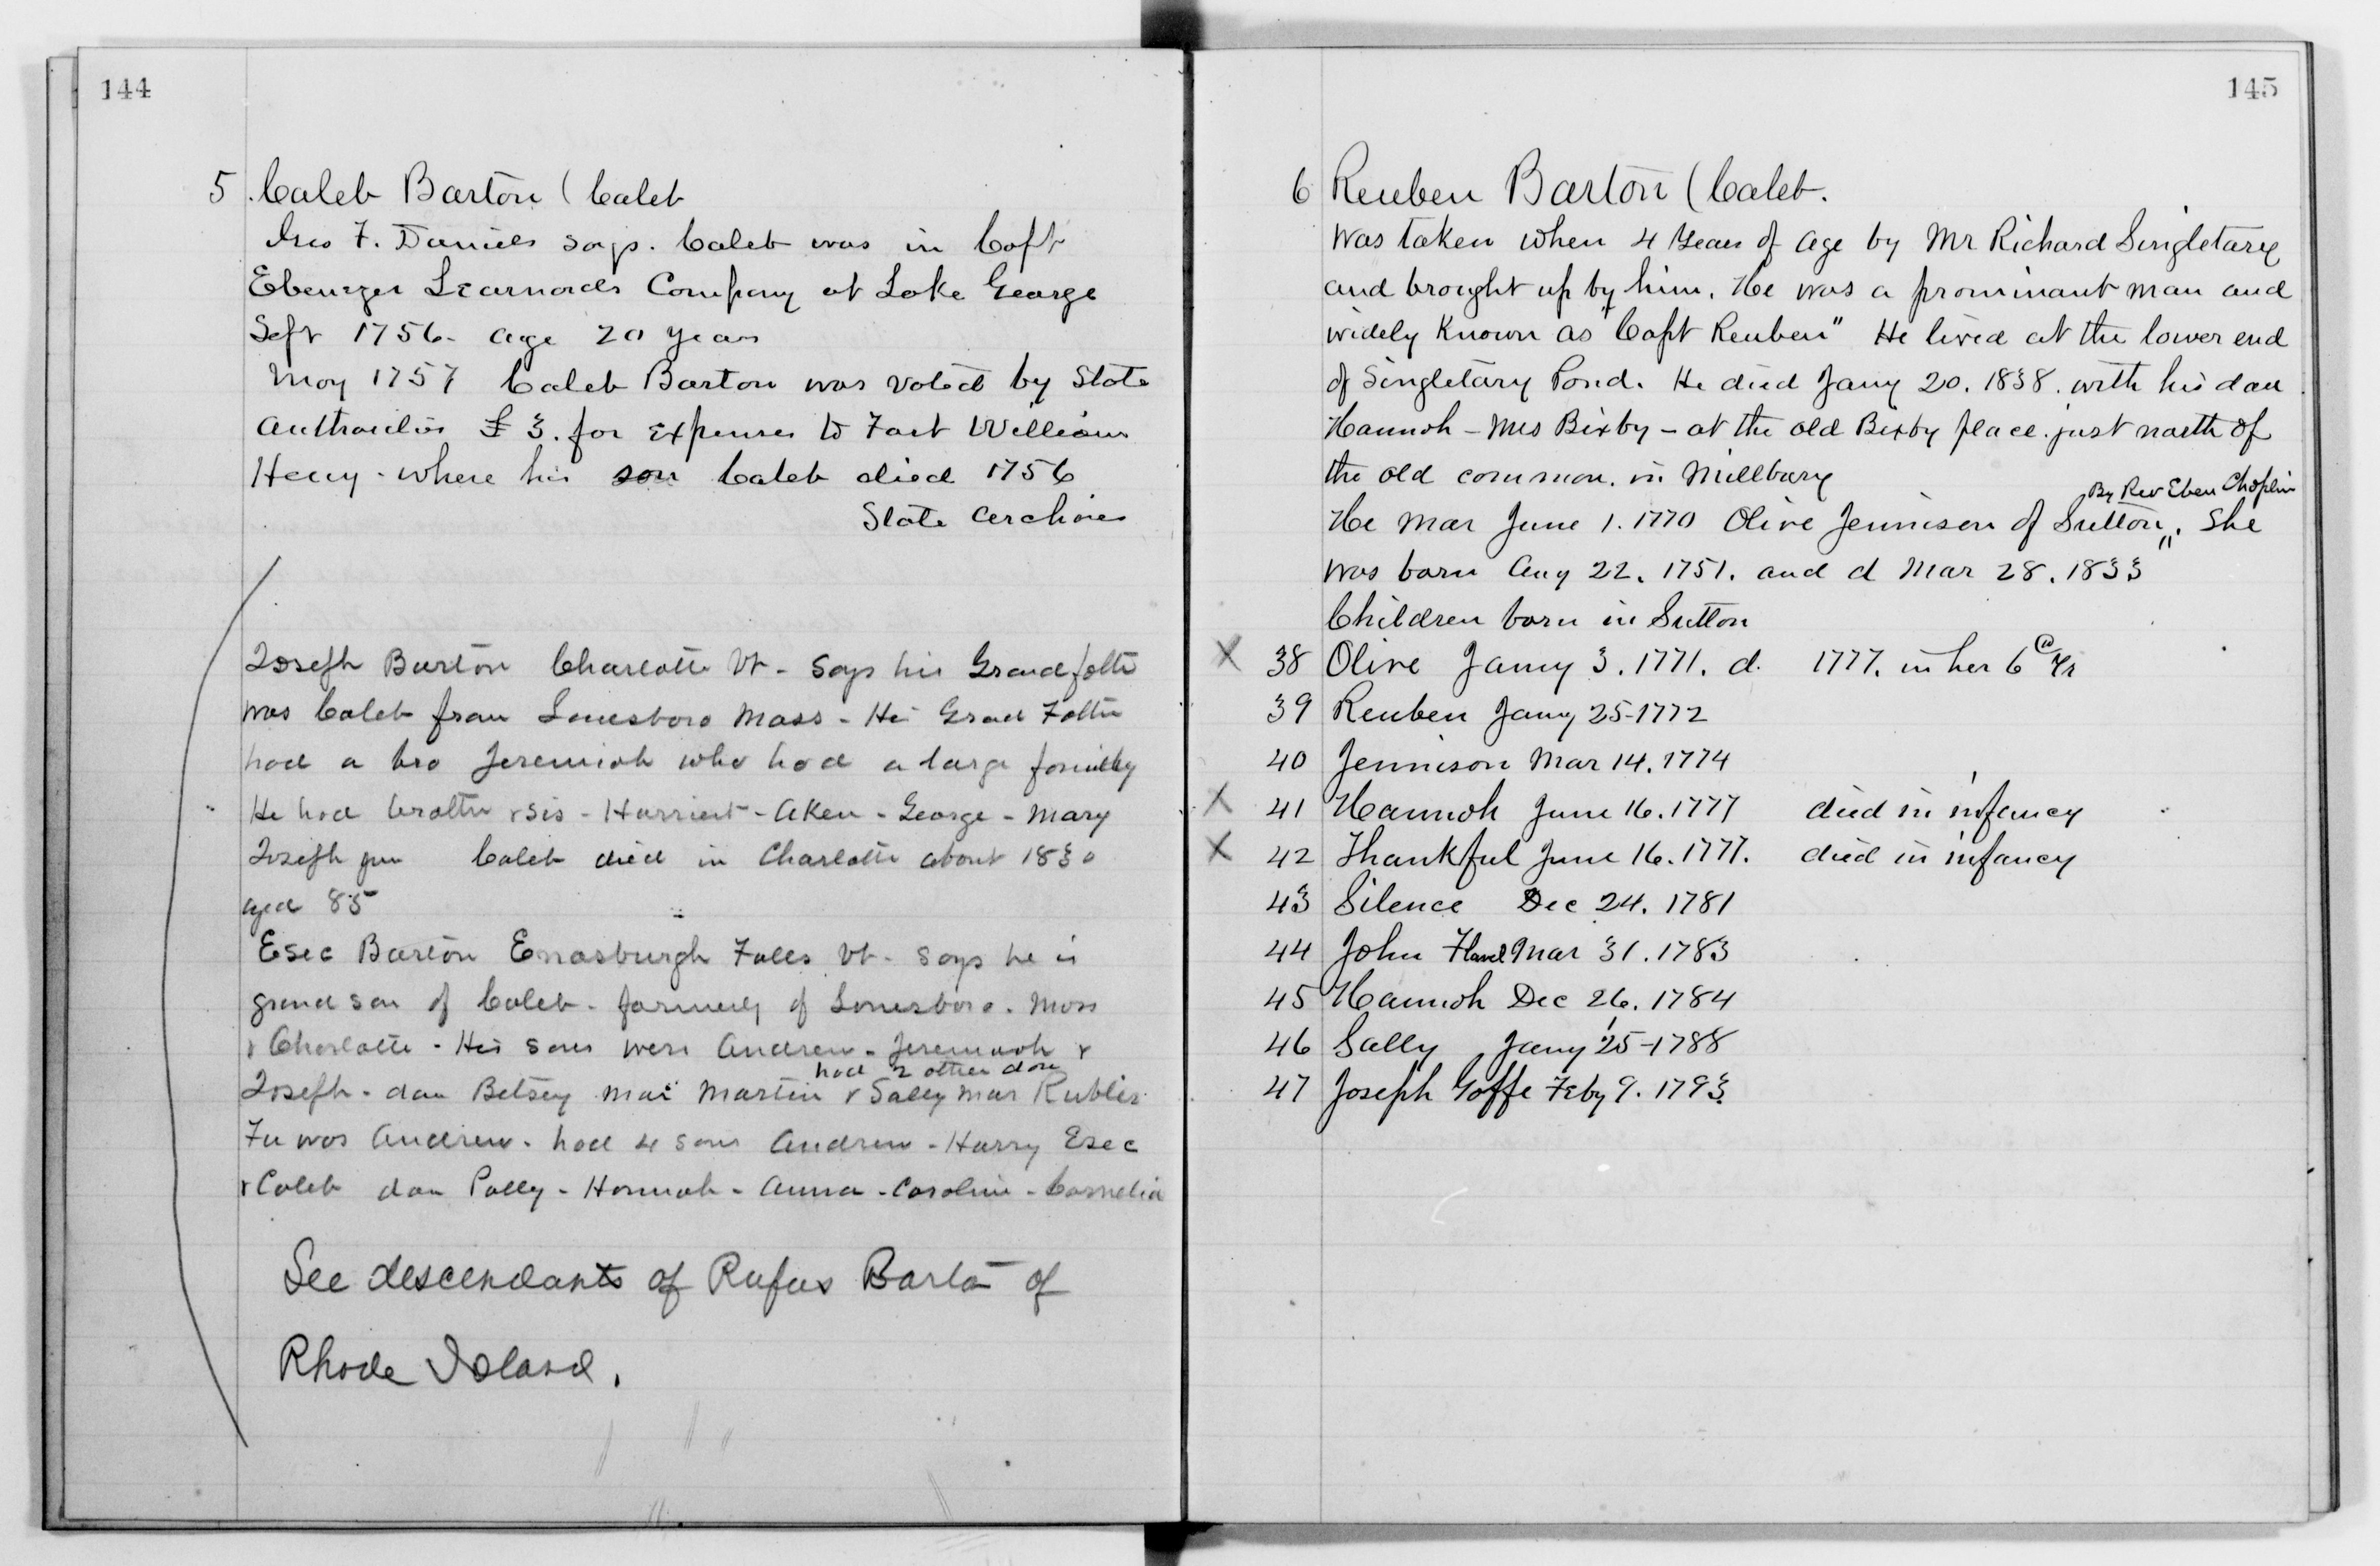 144
5 Caleb Barton (Caleb
Geo F. Daniels says. Caleb was in Capt
Ebenezer Learnards Company at Lake George
Sept 1756 - age 20 years
May 1757 Caleb Barton was voted by State
Authorities £ 3. for expenses to Fort William
Henry - where his son Caleb died 1756
State Archives
Joseph Barton Charlotte Vt - says his Grandfather
was Caleb from Lanesboro Mass - His Grand Father
had a bro Jeremiah who had a large family
He had brother & sis - Harriet - Aken - George - Mary
Joseph jun Caleb died in Charlotte about 1830
aged 85
Esec Barton Enosburgh Falls Vt - says he is
grandson of Caleb - formerly of Lanesboro. Mass
& Charlotte - His sons were Andrew - Jeremiah &
had 2 other dau
Joseph - dau Betsey mar Martin & Sally mar Rublee
Fa was Andrew - had 4 sons Andrew - Harry Esec
& Caleb dau Polly - Hannah - Anna - Caroline - Cornelia
See descendants of Rufus Barton of
Rhode Island.
145
6 Reuben Barton (Caleb.
was taken when 4 years of age by Mr Richard Singletary
and brought up by him. He was a prominant man and
widely Known as "Capt Reuben" He lived at the lower end
of Singletary Pond. He died Jany 20. 1838. with his dau
Hannah - Mrs Bixby - at the old Bixby place. just north of
the old common. in Millbury
By Rev Eben Chaplin
He mar June 1. 1770 Olive Jennison of Sutton,,. She
was born Aug 22. 1751. and d Mar 28. 1833
Children born in Sutton
X 38 Olive Jany 3. 1771. d. 1777. in her 6 Yr
39 Reuben Jany 25-1772
40 Jennison Mar 14. 1774
X 41 Hannah June 16. 1777 died in infancy
X 42 Thankful June 16. 1777. died in infancy
43 Silence Dec 24. 1781
44 John Flavel Mar 31. 1783
45 Hannah Dec 26. 1784
46 Sally Jany 25-1788
47 Joseph Goffe Feby 9. 1793